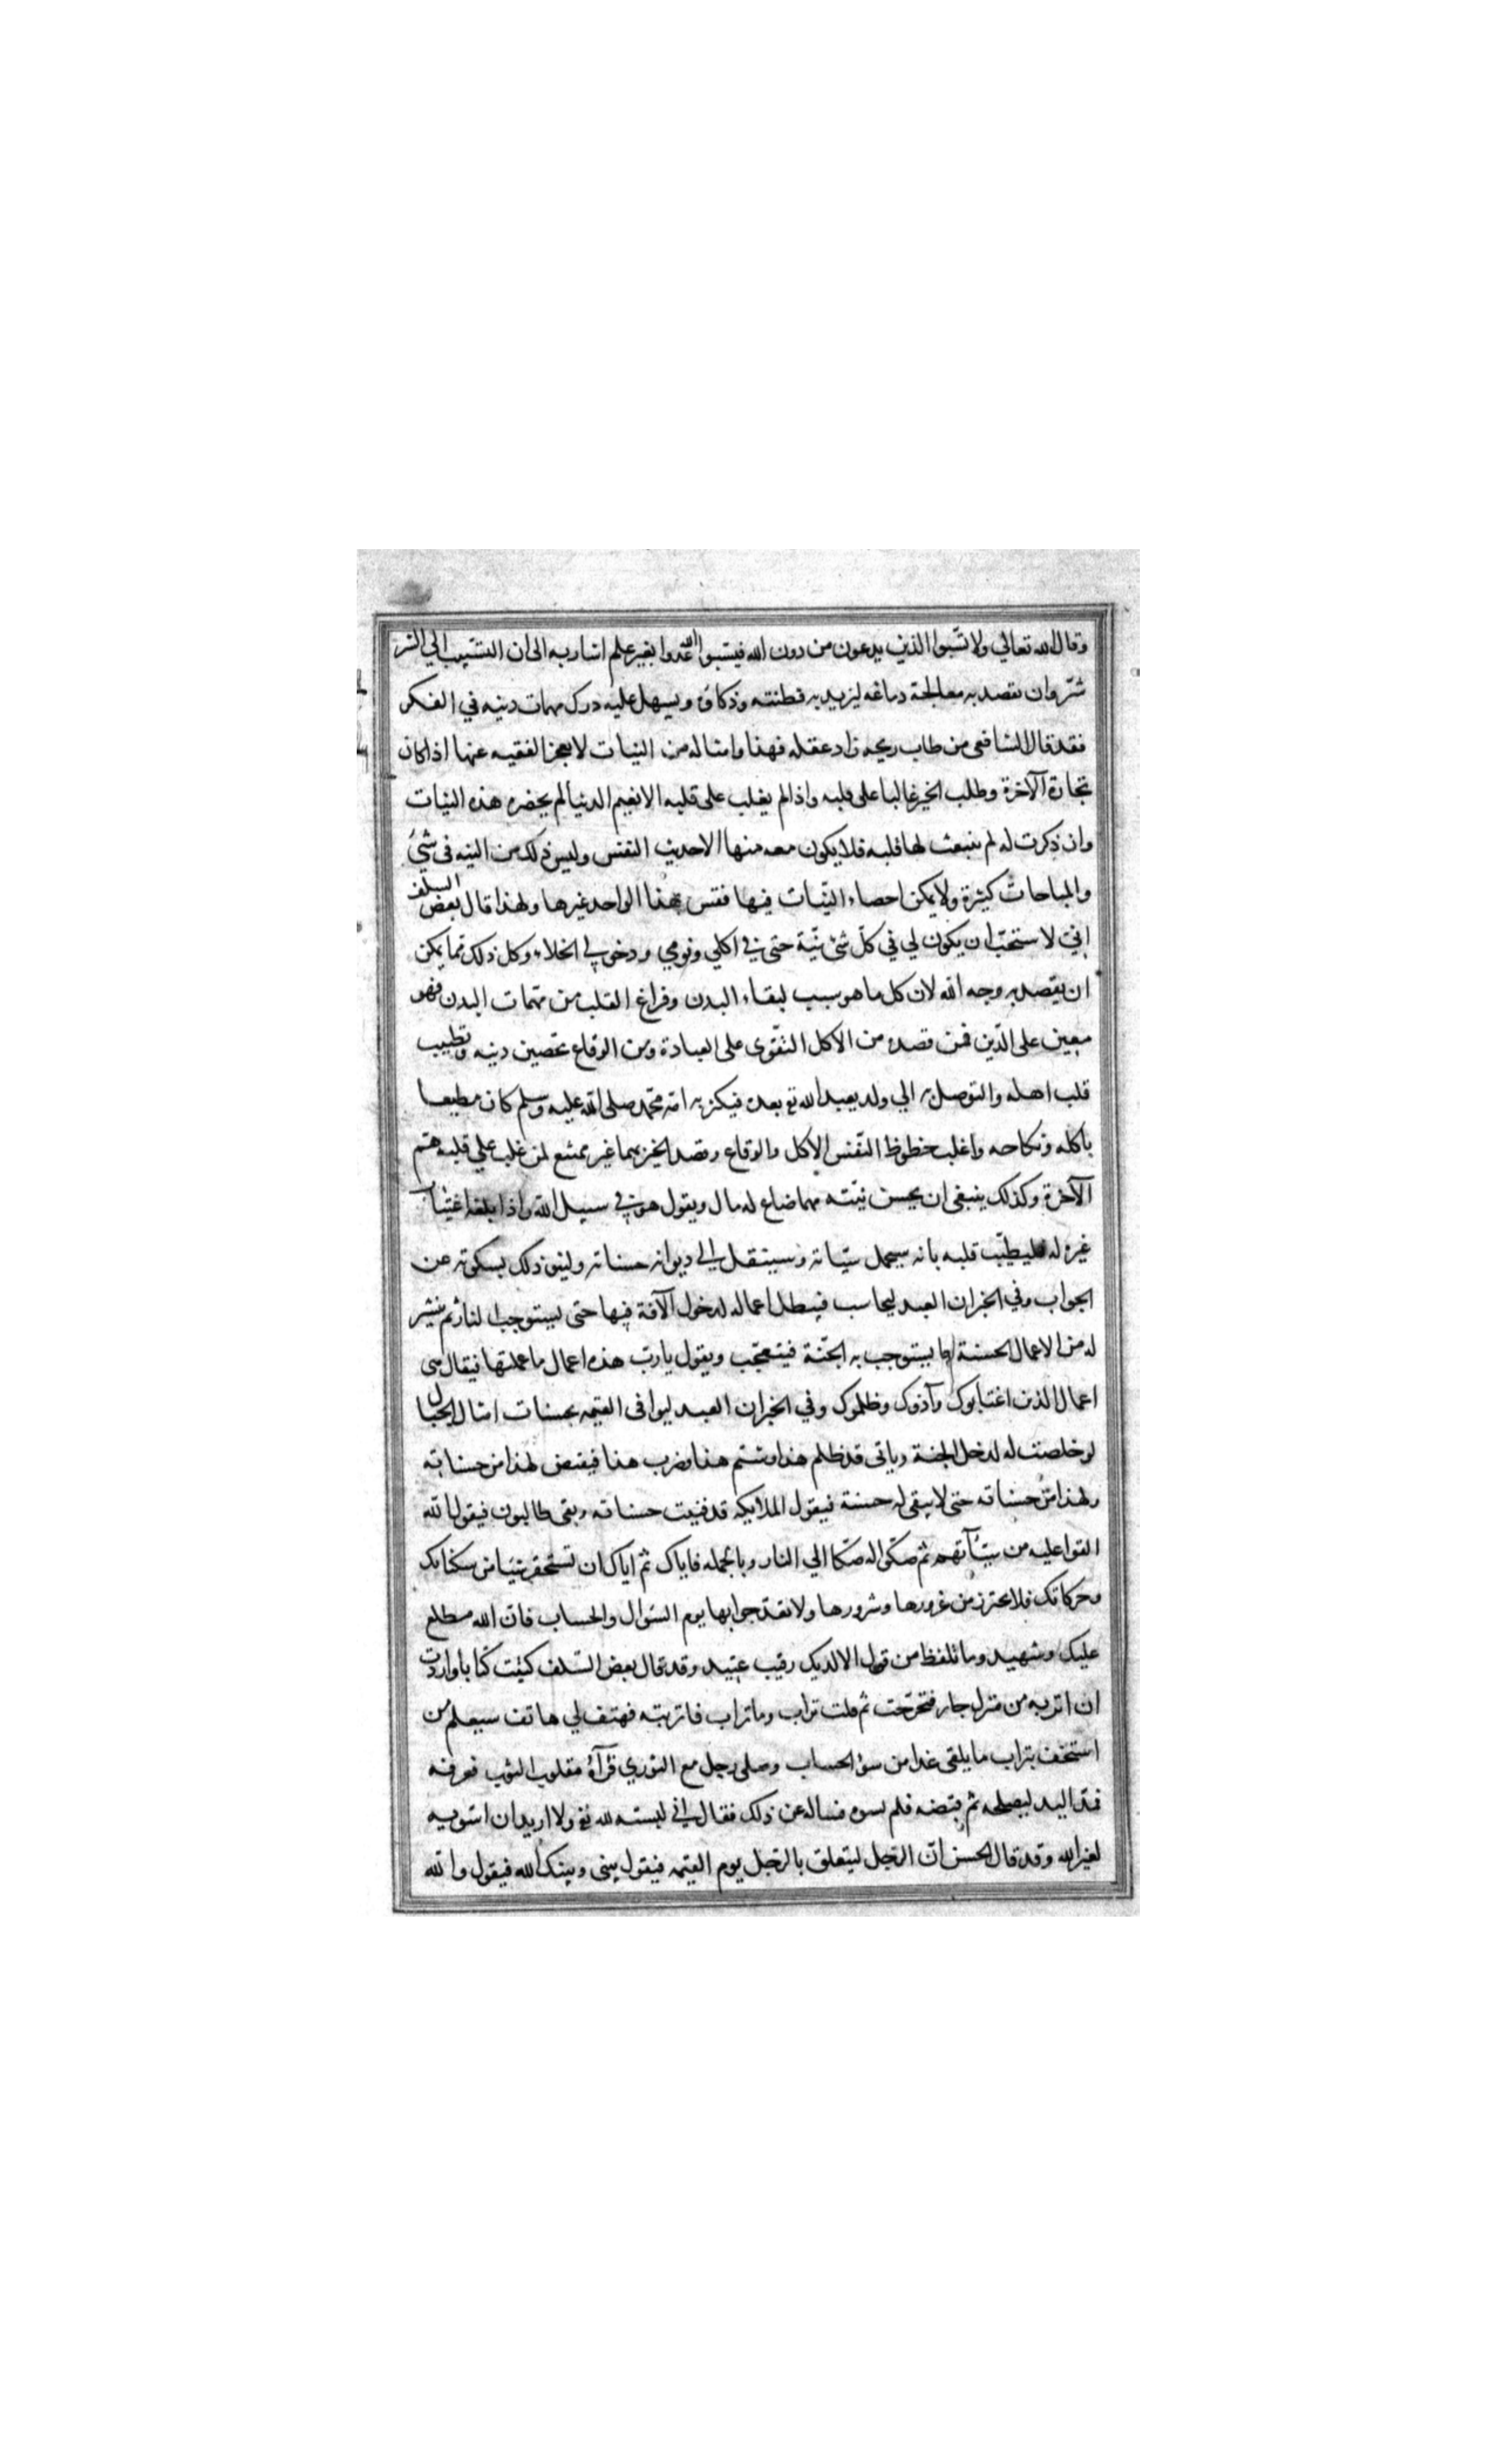 وقال الله تعالي ولا تسبوا الذين يدعون من دون الله فيسبوا الله عدوا بغير علم اشار به الى ان التسبب الي الشر
شر وان يقصد به معالجة دماغه ليزيد به فطنته وذكاؤه ويسهل عليه درك مهمات دينه في الفكر
فقد قال الشافعي من طاب ريحه زاد عقله فهذا وامثاله من النيات لا يعجز الفقيه عنها اذا كان
تجارة الآخرة وطلب الخير غالبا على قلبه واذا لم يغلب على قلبه الا نعيم الدنيا لم يحضره هذه النيات
وان ذكرت له لم ينبعث لها قلبه فلا يكون معه منها الا حديث النفس وليس ذلك من النيه في شيء
والمباحات كثيرة ولا يمكن احصاء النيّات فيها فقس بهذا الواحد غيرها ولهذا قال بعض السلف
اني لاستحبّ ان يكون لي في كلّ شئ نيّة حتى في اكلي ونومي ودخولي الخلاء وكل ذلك مما يمكن
ان يقصد به وجه الله لان كل ما هو سبب لبقاء البدن وفراغ القلب من مهمات البدن فهو
معين على الدّين فمن قصده من الاكل التقوّى على العبادة ومن الوقاع تحصين دينه وتطييب
قلب اهله والتوصل به الي ولد يعبد الله تع بعده فيكثر به امة محمد صلى الله عليه وسلم كان مطيعا
باكله ونكاحه واغلب حظوظ النّفس الاكل والوقاع وقصد الخير بهما غير ممتنع لمن غلب علي قلبه همّ
الآخرة وكذلك ينبغى ان يحسن نيّته مهما ضاع له مال ويقول هو في سبيل الله واذا بلغه اغتياب
غيره له فليطيّب قلبه بانه سيحمل سيّاته وسينقل الى ديوانه حسناته ولينو ذلك بسكوته عن
الجواب وفي الخبر ان العبد ليحاسب فيبطل اعماله لدخول الآفة فيها حتى يستوجب النار ثم ينشر
له من الاعمال الحسنة ما يستوجب به الجنّة فيتعجّب ويقول يا ربّ هذه اعمال ما عملتها فيقال هى
اعمال الذين اغتابوك وآذوك وظلموك وفي الخبر ان العبد ليوافى القيمه بحسنات امثال الجبال
لو خلصت له لدخل الجنة وياتى قد ظلم هذا وشتم هذا وضرب هذا فيقتص لهذا من حسناته
ولهذا من حسناته حتى لا يبقى له حسنة فيقول الملايكه قد فنيت حسناته وبقى طالبون فيقول الله
القوا عليه من سيّآتهم ثم صكّوا له صكّا الي النار وبالجمله فاياك ثم اياك ان تستحقر شيئا من سكناتك
وحركاتك فلا تحترز من غرورها وشرورها ولا تعدّ جوابها يوم السّوال والحساب فانّ الله مطلع
عليك وشهيد وما تلفظ من قول الا لديك رقيب عتيد وقد قال بعض السّلف كتبت كتابا واردت
ان اتربه من منزل جار فتحرّجت ثم قلت تراب وما تراب فاتربته فهتف لي هاتف سيعلم من
استخف بتراب ما يلقى غدا من سوء الحساب وصلى رجل مع الثوري فرآه مقلوب الثوب فعرفه
فمدّ اليد ليصلحه ثم قبضه فلم يسوه فساله عن ذلك فقال اني لبسته لله تع ولا اريد ان اسويه
لغير الله وقد قال الحسن انّ الرّجل ليتعلق بالرّجل يوم القيمه فيقول بينى وبينك الله فيقول والله